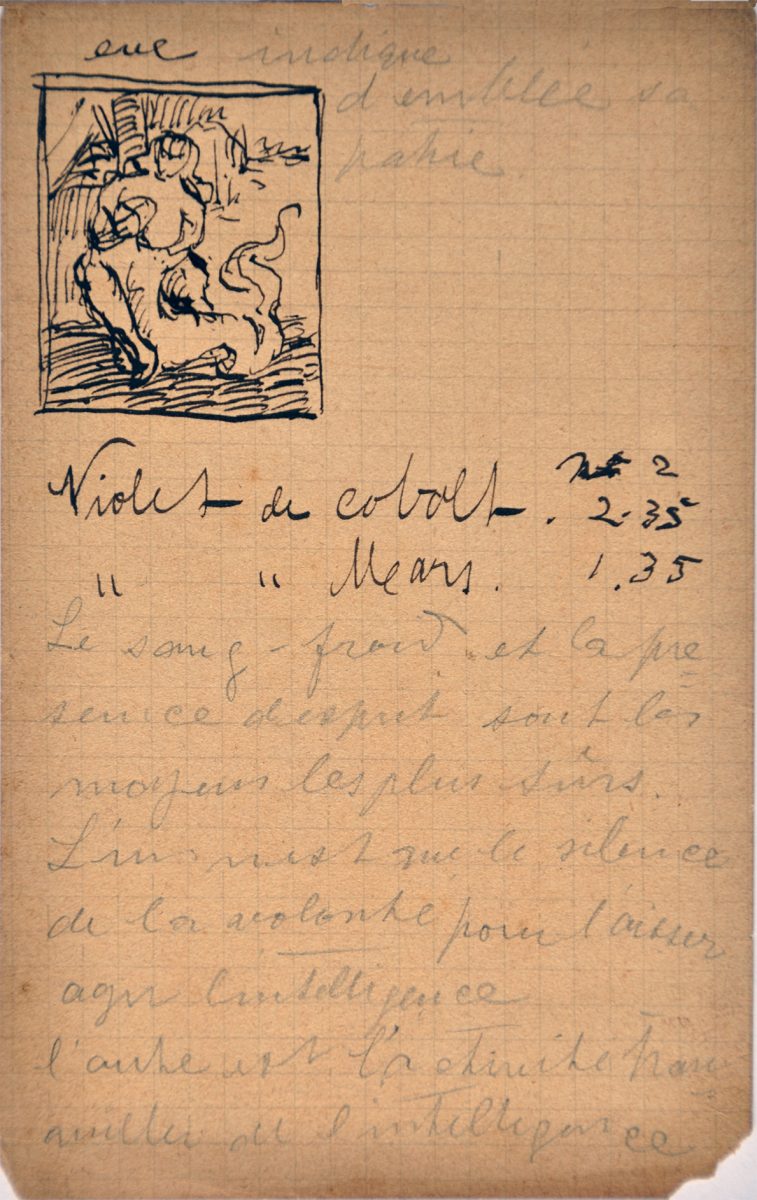 eue indique
d'emblée sa
patrie.
Violet de cobolt. N° 2
2.35
" " Mars. 1.35
Le sang-froid et la pre
sence d'esprit sont les
moyens les plus sûrs.
L'un n'est que le silence
de la volonte pour laisser
agir l'intelligence
l'autre est l'activité tran
quille de l'intelligence